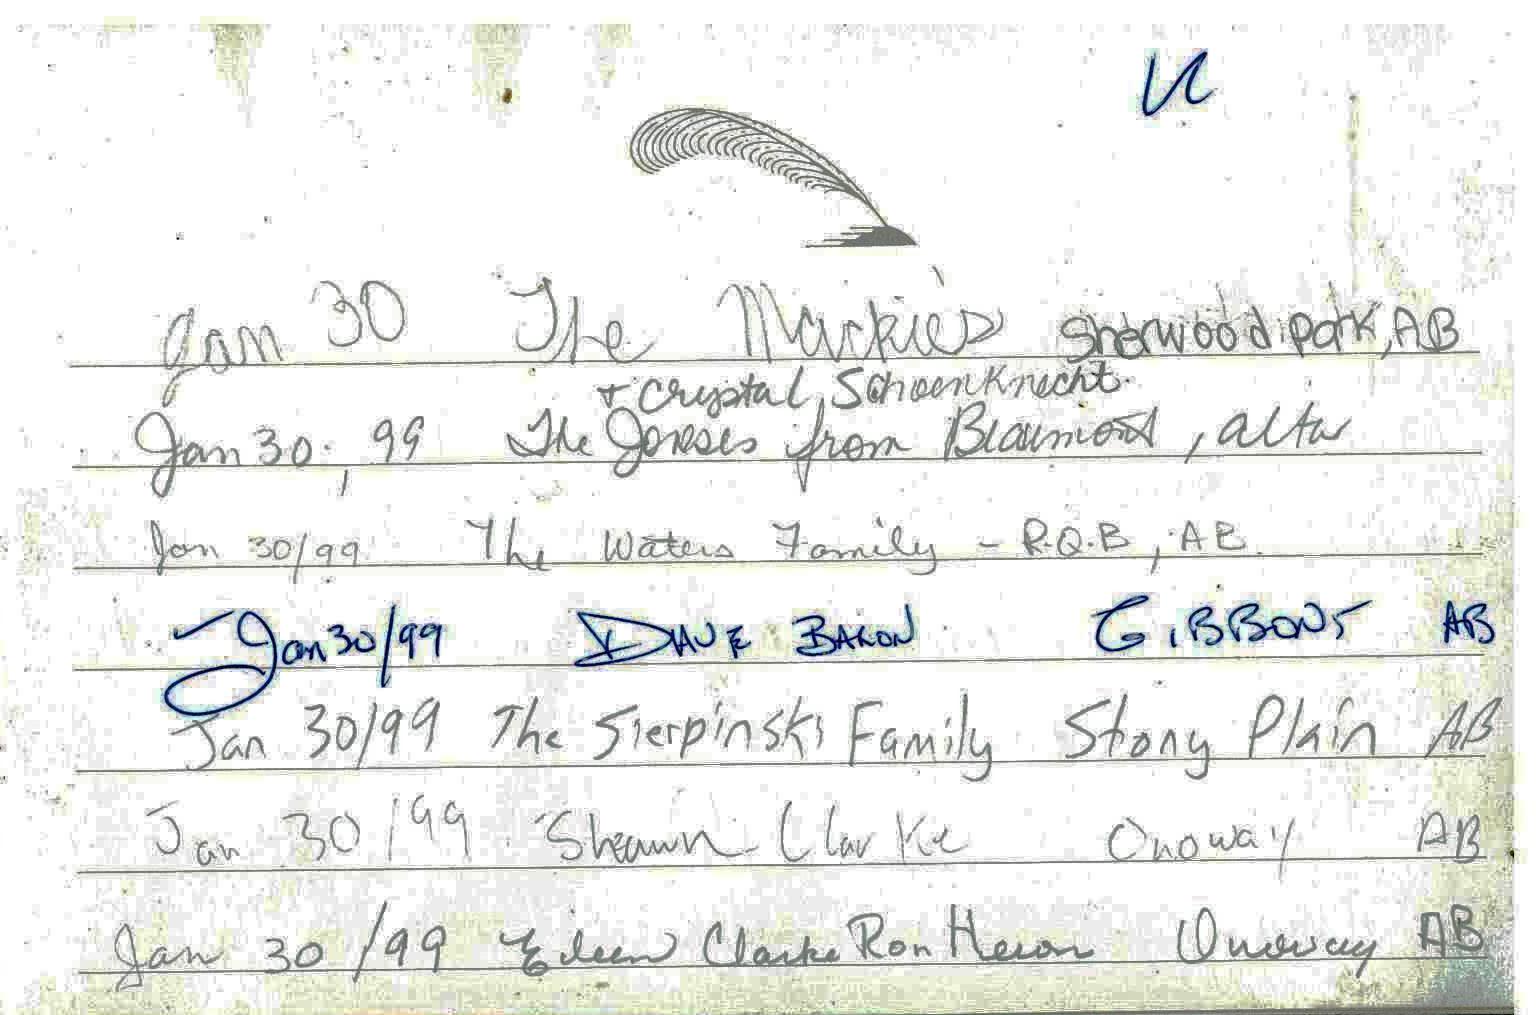 Jan 30 The Mackies Sherwood Park, AB
+ Crystal Schoenknecht
Jan 30, 99 The Joneses from Beaumont, alta
Jan 30/99 The Waters Family - R.Q.B, AB.
Jan 30/99 DAVE BARON GIBBONS AB
Jan 30/99 The Sierpinski Family Stony Plain AB
Jan 30/99 Shawn Clarke Onoway AB
Jan 30/99 Eileen Clarke Ron Heron Onoway AB